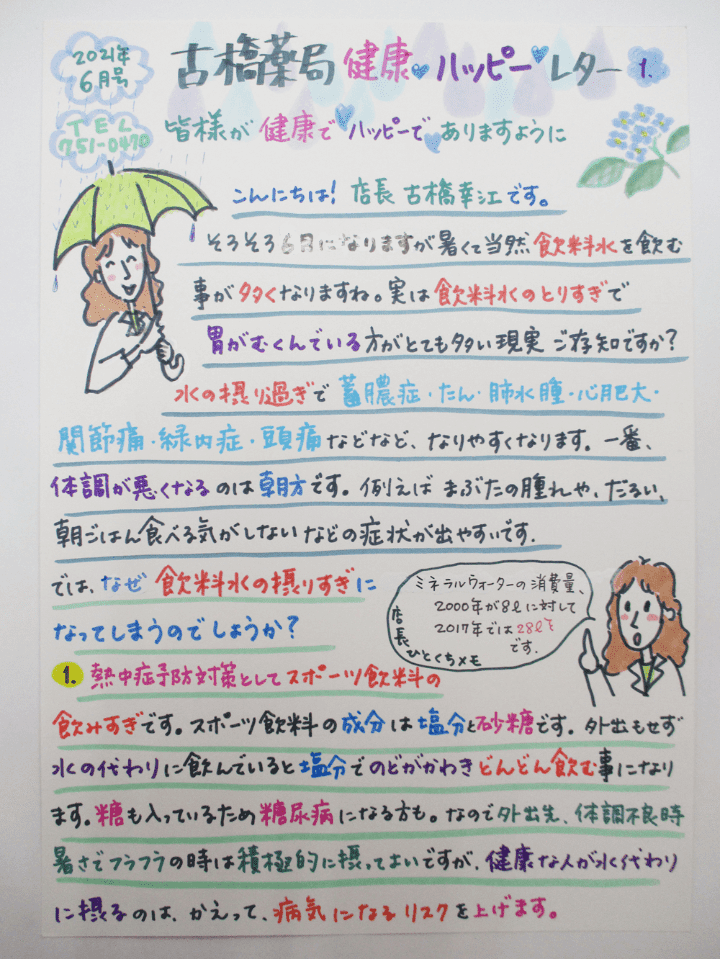 2021年
6月号
古橋薬局 健康 ハッピー レター 1.
TEL
751-0470
皆様が 健康で ハッピーで ありますように
こんにちは! 店長 古橋幸江です。
そろそろ6月になりますが暑くて当然 飲料水を飲む
事が多くなりますね。実は飲料水のとりすぎで
胃がむくんでいる方がとても多い現実 ご存知ですか?
水の摂り過ぎで 蓄膿症・たん・肺水腫・心肥大・
関節痛・緑内症・頭痛などなど、なりやすくなります。一番、
体調が悪くなるのは朝方です。例えば まぶたの腫れや、だるい、
朝ごはん食べる気がしないなどの症状が出やすいです.
では、なぜ 飲料水の摂りすぎに
なってしまうのでしょうか?
ミネラルウォーターの消費量、
2000年が8ℓに対して
2017年では28ℓも
です.
店長ひとくちメモ
1. 熱中症予防対策としてスポーツ飲料の
飲みすぎです。スポーツ飲料の成分は塩分と砂糖です。外出もせず
水の代わりに飲んでいると塩分でのどがかわきどんどん飲む事になり
ます。糖も入っているため糖尿病になる方も。なので外出先、体調不良時
暑さでフラフラの時は積極的に摂ってよいですが、健康な人が水代わり
に摂るのは、かえって、病気になるリスクを上げます。